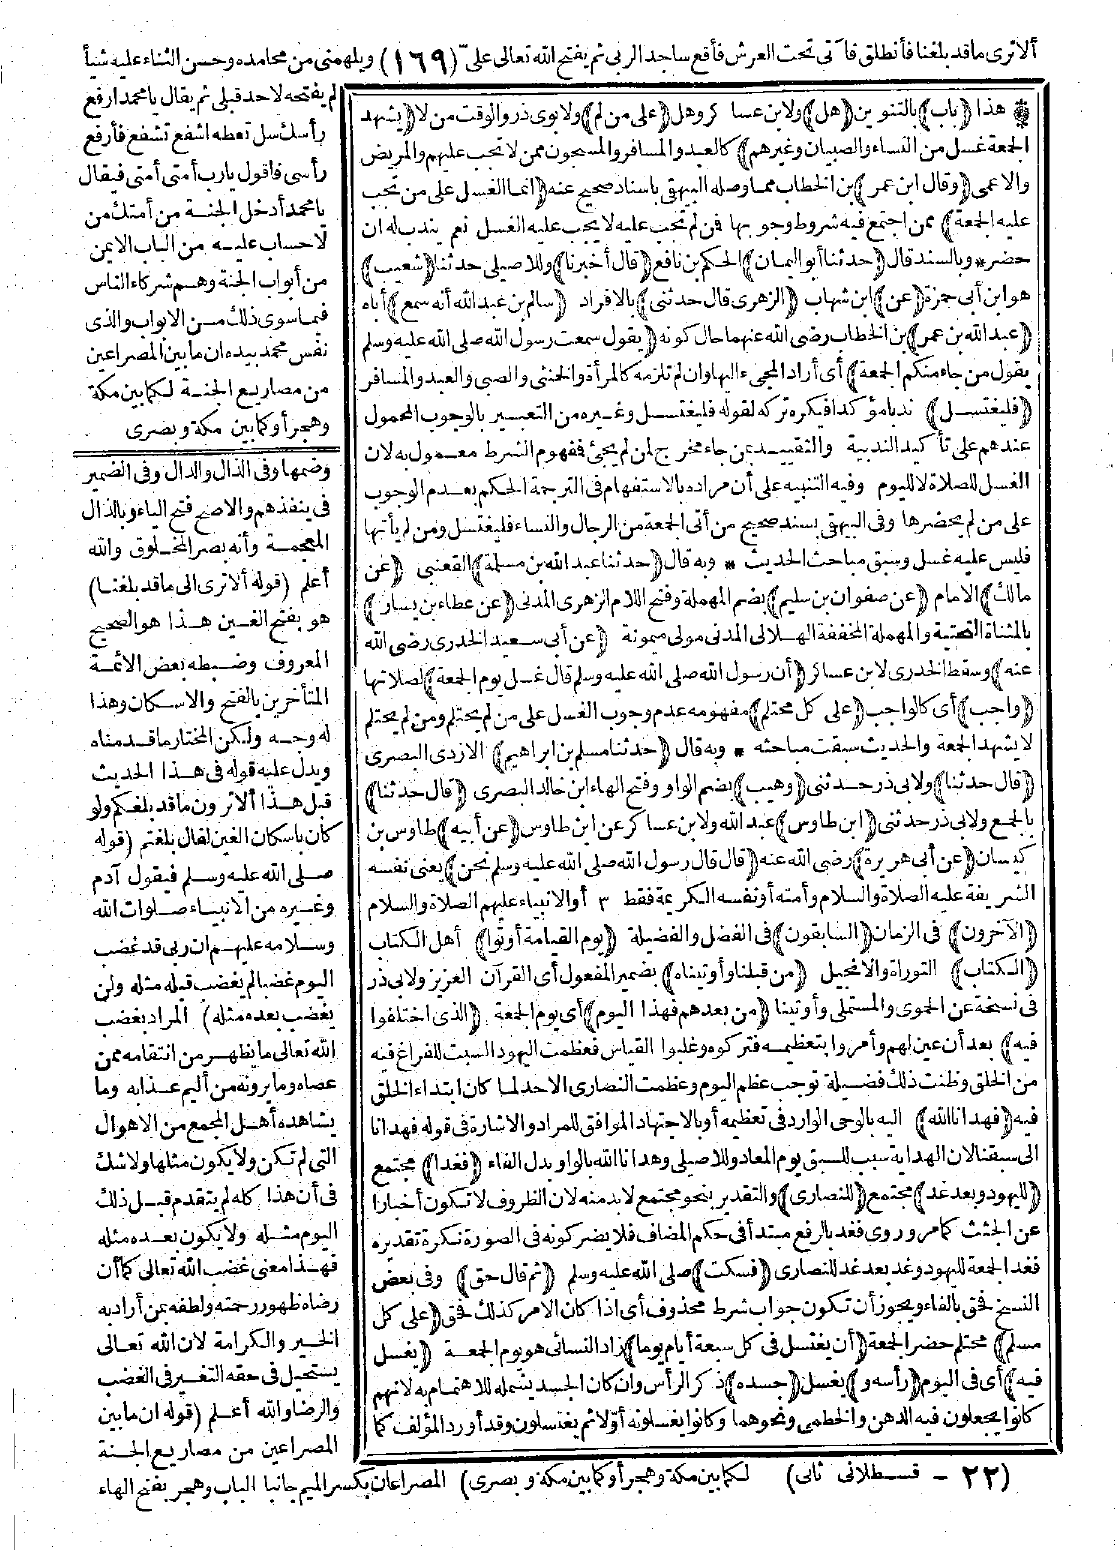 ألا ترى ما قد بلغنا فأنطلق فآتى تحت العرش فأقع ساجدا لربى ثم يفتح الله تعالى علىّ (١٦٩) ويلهمنى من محامده وحسن الثناء عليه شيأ
هذا ﴿باب﴾ بالتنوين ﴿هل﴾ ولابن عساكر وهل ﴿على من لم﴾ ولابوى ذر والوقت من لا ﴿يشهد
الجمعة غسل من النساء والصبيان وغيرهم﴾ كالعبد والمسافر والمسجون ممن لا تجب عليهم والمريض
والاعمى ﴿وقال ابن عمر﴾ بن الخطاب مما وصله البيهقى باسناد صحيح عنه ﴿انما الغسل على من تجب
عليه الجمعة﴾ ممن اجتمع فيه شروط وجوبها فمن لم تجب عليه لا يجب عليه الغسل نعم يندب له ان
حضر * وبالسند قال ﴿حدثنا أبو اليمان﴾ الحكم بن نافع ﴿قال أخبرنا﴾ وللاصيلى حدثنا ﴿شعيب﴾
هو ابن أبى حمزة ﴿عن﴾ ابن شهاب ﴿الزهرى قال حدثنى﴾ بالافراد ﴿سالم بن عبد الله أنه سمع﴾ أباه
﴿عبد الله بن عمر﴾ بن الخطاب رضى الله عنهما حال كونه ﴿يقول سمعت رسول الله صلى الله عليه وسلم
يقول من جاء منكم الجمعة﴾ أى أراد المجىء اليها وان لم تلزمه كالمرأة والخنثى والصبى والعبد والمسافر
﴿فليغتسل﴾ ندبا مؤكدا فيكره تركه لقوله فليغتسل وغيره من التعبير بالوجوب المحمول
عندهم على تأكيد الندبية والتقييد بمن جاء مخرج لمن لم يجئ فمفهوم الشرط معمول به لان
الغسل للصلاة لا لليوم وفيه التنبيه على أن مراده بالاستفهام فى الترجمة الحكم بعدم الوجوب
على من لم يحضرها وفى البيهقى بسند صحيح من أتى الجمعة من الرجال والنساء فليغتسل ومن لم يأتها
فليس عليه غسل وسبق مباحث الحديث * وبه قال ﴿حدثنا عبد الله بن مسلمة﴾ القعنبى ﴿عن
مالك﴾ الامام ﴿عن صفوان بن سليم﴾ بضم المهملة وفتح اللام الزهرى المدنى ﴿عن عطاء بن يسار﴾
بالمثناة التحتية والمهملة المخففة الهلالى المدنى مولى ميمونة ﴿عن أبى سعيد الخدرى رضى الله
عنه﴾ وسقط الخدرى لابن عساكر ﴿أن رسول الله صلى الله عليه وسلم قال غسل يوم الجمعة﴾ لصلاتها
﴿واجب﴾ أى كالواجب ﴿على كل محتلم﴾ مفهومه عدم وجوب الغسل على من لم يحتلم ومن لم يحتلم
لا يشهد الجمعة والحديث سبقت مباحثه * وبه قال ﴿حدثنا مسلم بن ابراهيم﴾ الازدى البصرى
﴿قال حدثنا﴾ ولابى ذر حدثنى ﴿وهيب﴾ بضم الواو وفتح الهاء ابن خالد البصرى ﴿قال حدثنا﴾
بالجمع ولابى ذر حدثنى ﴿ابن طاوس﴾ عبد الله ولابن عساكر عن ابن طاوس ﴿عن أبيه﴾ طاوس بن
كيسان ﴿عن أبى هريرة﴾ رضى الله عنه ﴿قال قال رسول الله صلى الله عليه وسلم نحن﴾ يعنى نفسه
الشريفة عليه الصلاة والسلام وأمته أو نفسه الكريمة فقط ٣ أو الانبياء عليهم الصلاة والسلام
﴿الآخرون﴾ فى الزمان ﴿السابقون﴾ فى الفضل والفضيلة ﴿يوم القيامة أوتوا﴾ أهل الكتاب
﴿الكتاب﴾ التوراة والانجيل ﴿من قبلنا وأوتيناه﴾ بضمير المفعول أى القرآن العزيز ولابى ذر
فى نسخة عن الحموى والمستملى وأوتينا ﴿من بعدهم فهذا اليوم﴾ أى يوم الجمعة ﴿الذى اختلفوا
فيه﴾ بعد أن عين لهم وأمروا بتعظيمه فتركوه وغلبوا القياس فعظمت اليهود السبت للفراغ فيه
من الخلق وظنت ذلك فضيلة توجب عظم اليوم وعظمت النصارى الاحد لما كان ابتداء الخلق
فيه ﴿فهدانا الله﴾ اليه بالوحى الوارد فى تعظيمه أو بالاجتهاد الموافق للمراد والاشارة فى قوله فهدانا
الى سبقنا لان الهداية سبب للسبق يوم المعاد وللاصيلى وهدانا الله بالواو بدل الفاء ﴿فغدا﴾ مجتمع
﴿لليهود وبعد غد﴾ مجتمع ﴿للنصارى﴾ والتقدير بنحو مجتمع لابد منه لان الظروف لا تكون أخبارا
عن الجثث كما مر وروى فغد بالرفع مبتدأ فى حكم المضاف فلا يضر كونه فى الصورة نكرة تقديره
فغد الجمعة لليهود وغد بعد غد للنصارى ﴿فسكت﴾ صلى الله عليه وسلم ﴿ثم قال حق﴾ وفى بعض
النسخ فحق بالفاء ويجوز أن تكون جواب شرط محذوف أى اذا كان الامر كذلك فحق ﴿على كل
مسلم﴾ محتلم حضر الجمعة ﴿أن يغتسل فى كل سبعة أيام يوما﴾ زاد النسائى هو يوم الجمعة ﴿يغسل
فيه﴾ أى فى اليوم ﴿رأسه و﴾ يغسل ﴿جسده﴾ ذكر الرأس وان كان الجسد يشمله للاهتمام به لانهم
كانوا يجعلون فيه الدهن والخطمى ونحوهما وكانوا يغسلونه أوّلا ثم يغتسلون وقد أورد المؤلف كما
(٢٢ - قسطلانى ثانى)
لم يفتحه لاحد قبلى ثم يقال يا محمد ارفع
رأسك سل تعطه اشفع تشفع فأرفع
رأسى فاقول يا رب أمتى أمتى فيقال
يا محمد أدخل الجنة من أمتك من
لا حساب عليه من الباب الايمن
من أبواب الجنة وهم شركاء الناس
فيما سوى ذلك من الابواب والذى
نفس محمد بيده ان ما بين المصراعين
من مصاريع الجنة لكما بين مكة
وهجر أو كما بين مكة وبصرى
وضمها وفى الذال والدال وفى الضمير
فى ينفذهم والاصح فتح الياء وبالذال
المعجمة وأنه بصر المخلوق والله
أعلم (قوله ألا ترى الى ما قد بلغنا)
هو بفتح الغين هذا هو الصحيح
المعروف وضبطه بعض الائمة
المتأخرين بالفتح والاسكان وهذا
له وجه ولكن المختار ما قدمناه
ويدل عليه قوله فى هذا الحديث
قبل هذا ألا ترون ما قد بلغكم ولو
كان باسكان الغين لقال بلغتم (قوله
صلى الله عليه وسلم فيقول آدم
وغيره من الانبياء صلوات الله
وسلامه عليهم ان ربى قد غضب
اليوم غضبا لم يغضب قبله مثله ولن
يغضب بعده مثله) المراد بغضب
الله تعالى ما يظهر من انتقامه ممن
عصاه وما يرونه من أليم عذابه وما
يشاهده أهل المجمع من الاهوال
التى لم تكن ولا يكون مثلها ولا شك
فى أن هذا كله لم يتقدم قبل ذلك
اليوم مثله ولا يكون بعده مثله
فهذا معنى غضب الله تعالى كما أن
رضاه ظهور رحمته ولطفه بمن أراد به
الخير والكرامة لان الله تعالى
يستحيل فى حقه التغير فى الغضب
والرضا والله أعلم (قوله ان ما بين
المصراعين من مصاريع الجنة
لكما بين مكة وهجر أو كما بين مكة وبصرى) المصراعان بكسر الميم جانبا الباب وهجر بفتح الهاء